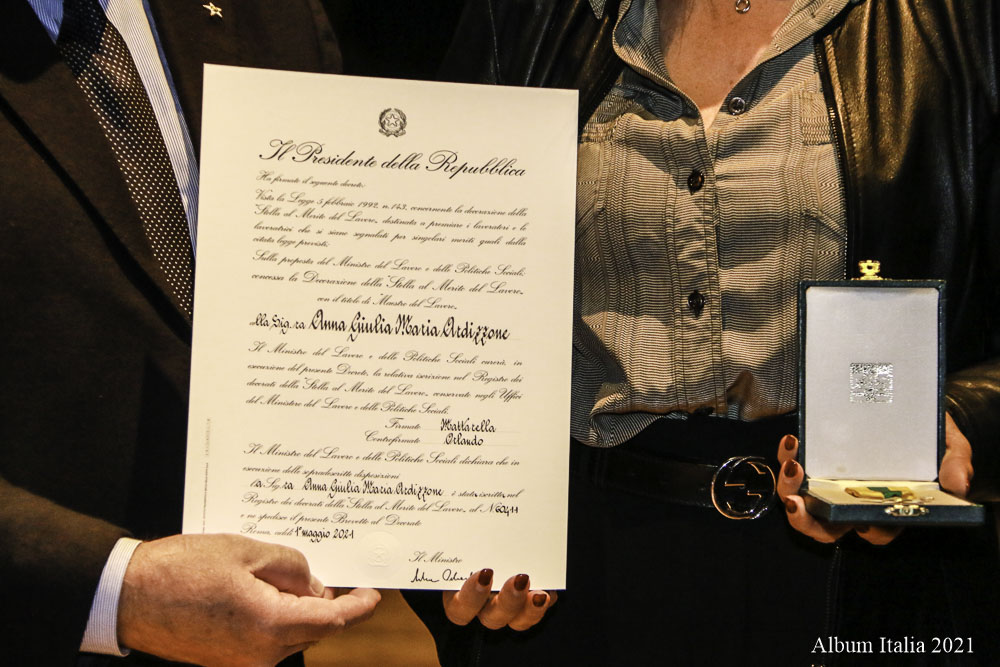 Il Presidente della Repubblica
Ha firmato il seguente decreto:
Vista la Legge 5 febbraio 1992, n. 143, concernente la decorazione della
"Stella al Merito del Lavoro", destinata a premiare i lavoratori e le
lavoratrici che si siano segnalati per singolari meriti quali dalla
citata legge previsti;
Sulla proposta del Ministro del Lavoro e delle Politiche Sociali;
concessa la Decorazione della "Stella al Merito del Lavoro",
con il titolo di Maestro del Lavoro,
alla Sig.ra Anna Giulia Maria Ardizzone
Il Ministro del Lavoro e delle Politiche Sociali curerà, in
esecuzione del presente Decreto, la relativa iscrizione nel Registro dei
decorati della "Stella al Merito del Lavoro", conservato negli Uffici
del Ministero del Lavoro e delle Politiche Sociali.
Firmato Mattarella
Controfirmato Orlando
Il Ministro del Lavoro e delle Politiche Sociali dichiara che in
esecuzione delle sopradescritte disposizioni
la Sig.ra Anna Giulia Maria Ardizzone è stata iscritta nel
Registro dei decorati della Stella al Merito del Lavoro, al N° 60411
e ne spedisce il presente Brevetto al Decorato
Roma, addì 1° maggio 2021
Il Ministro
Album Italia 2021